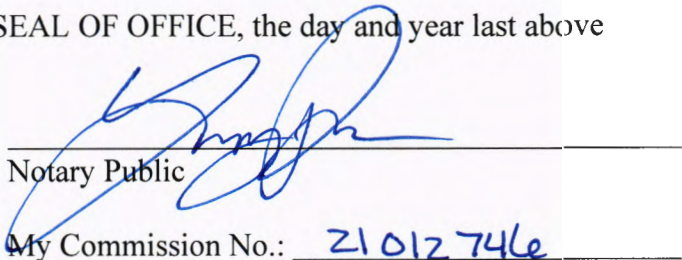 SEAL OF OFFICE, the day and year last above
Notary Public
My Commission No.: 21012746